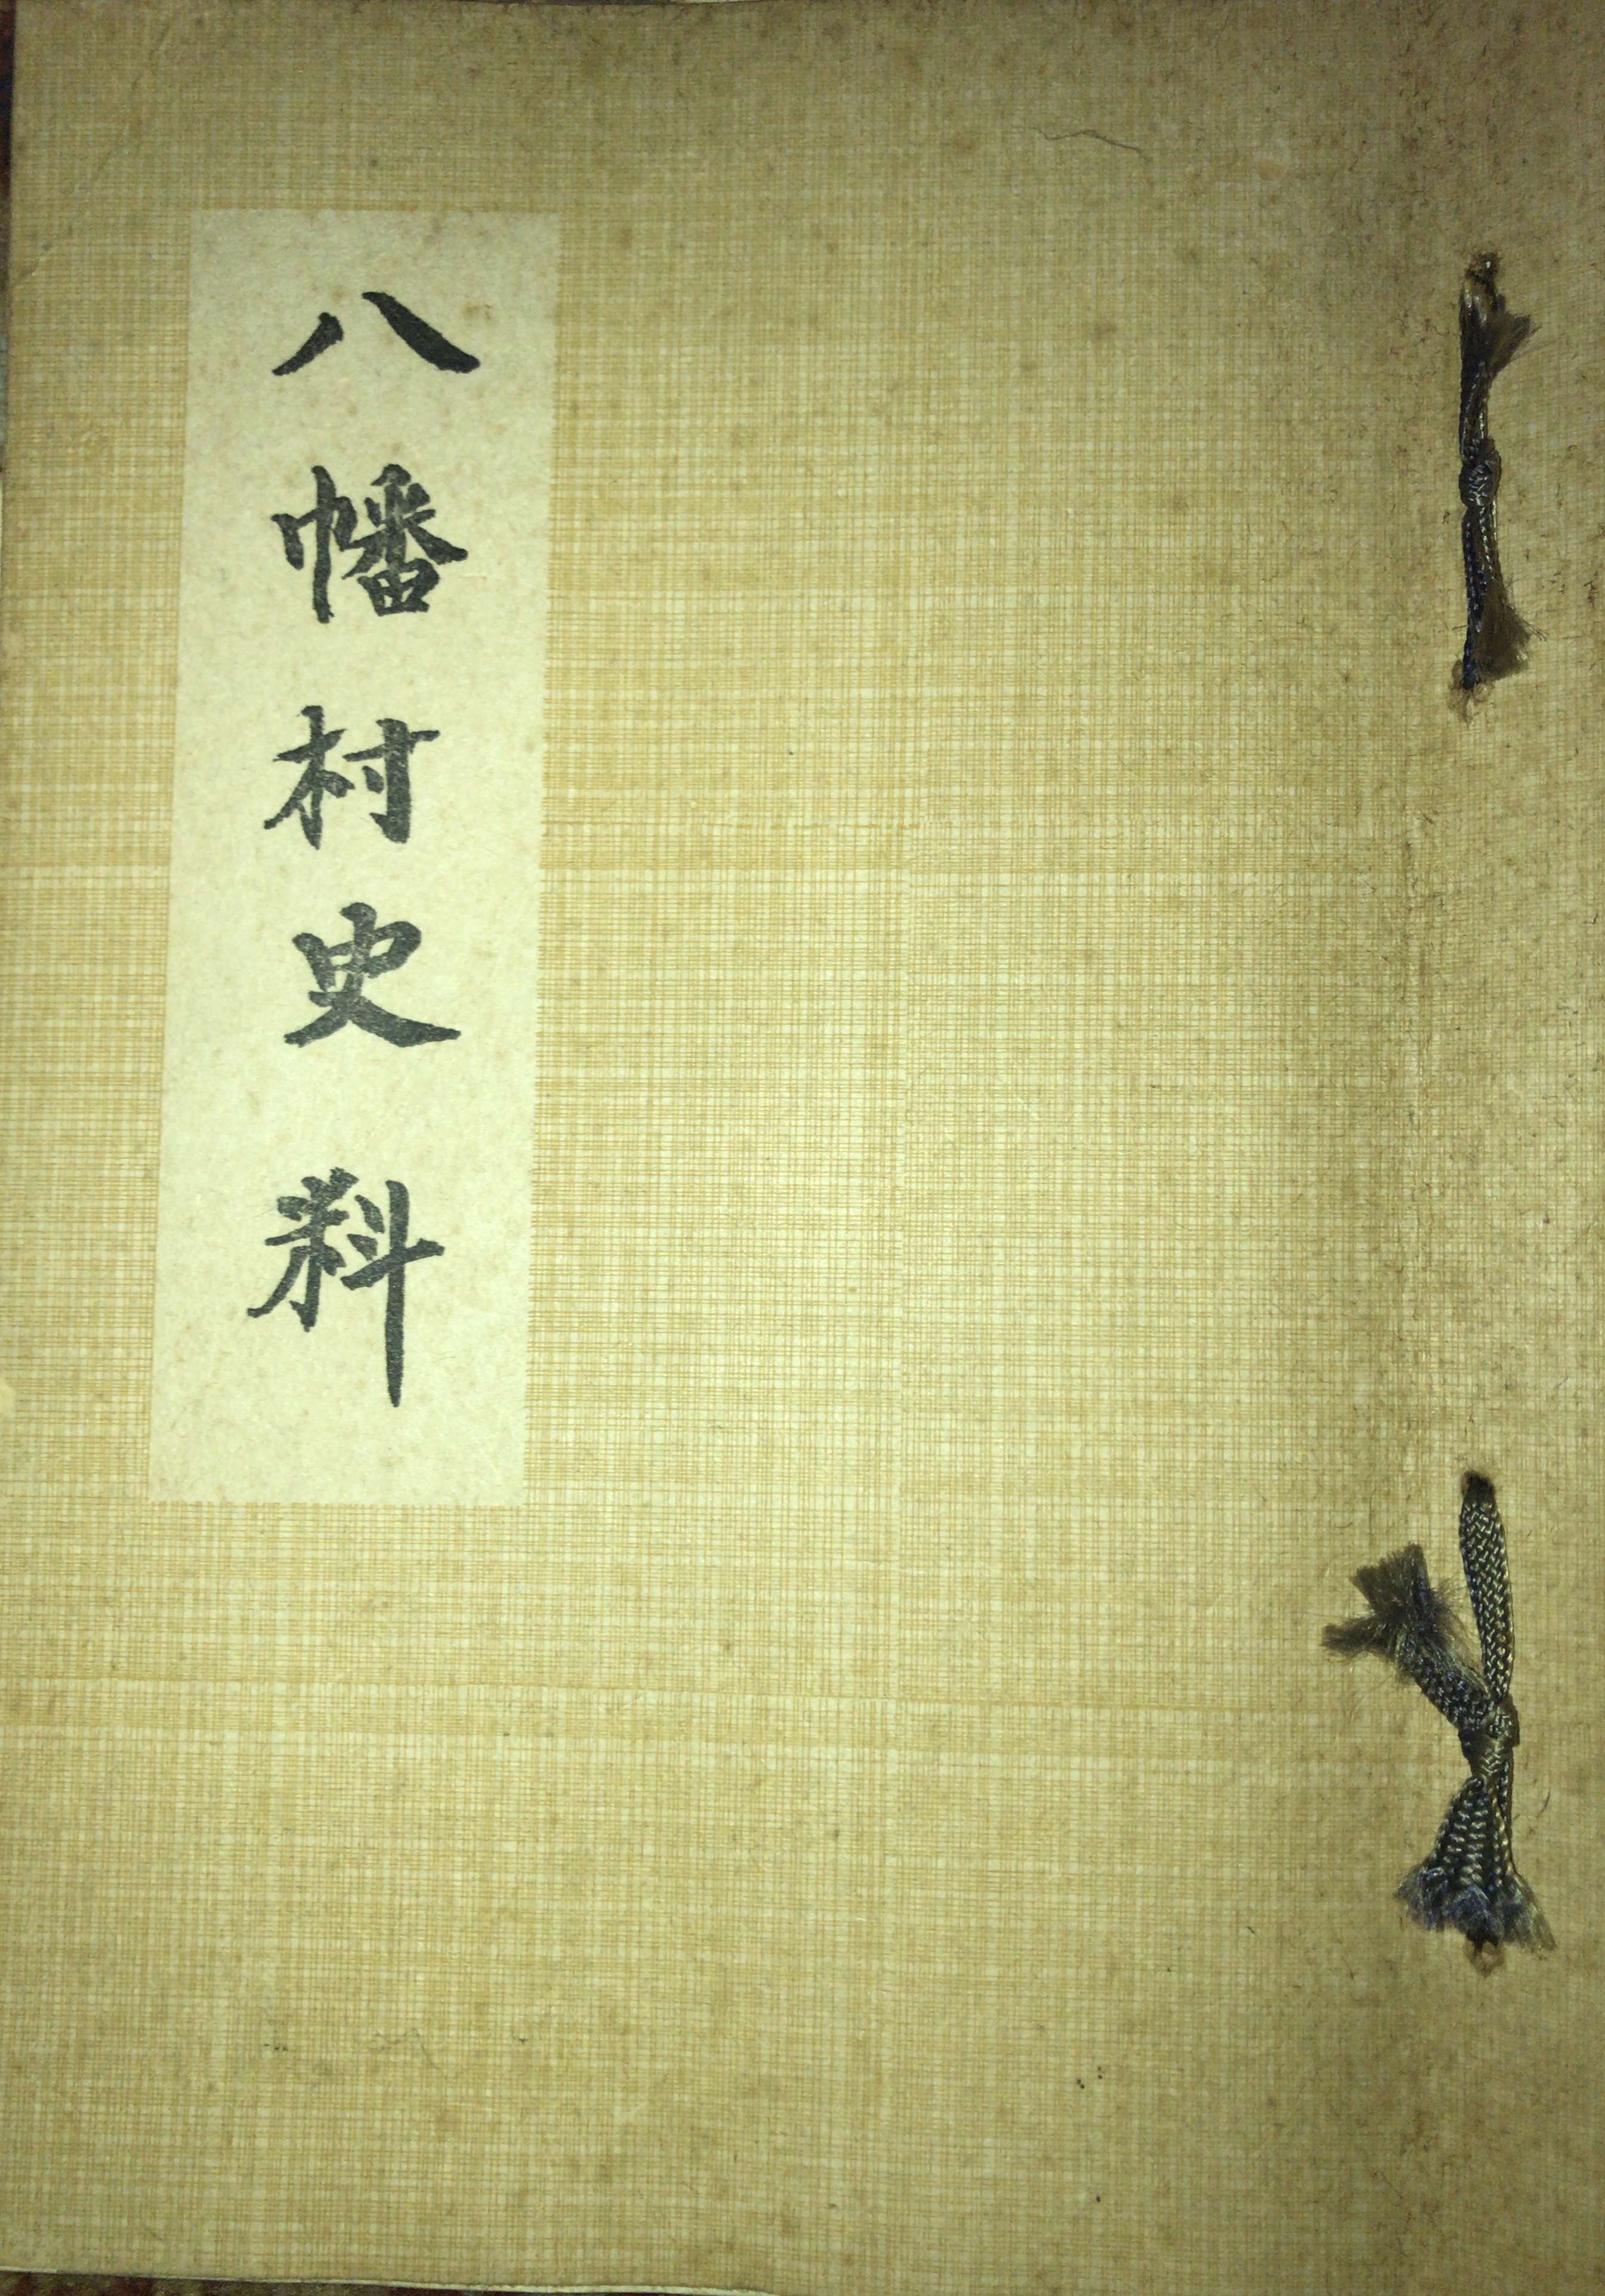 八幡村史料